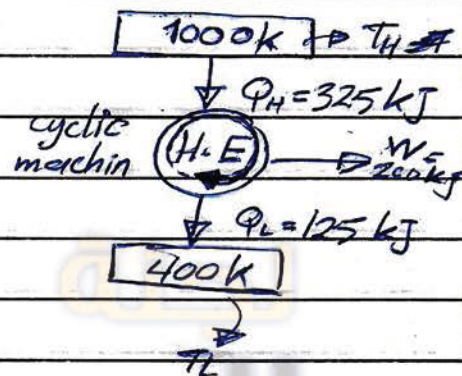 1000k → TH
QH = 325 kJ
cyclic
machin
H.E
W =
200kJ
QL = 125 kJ
400k
TL